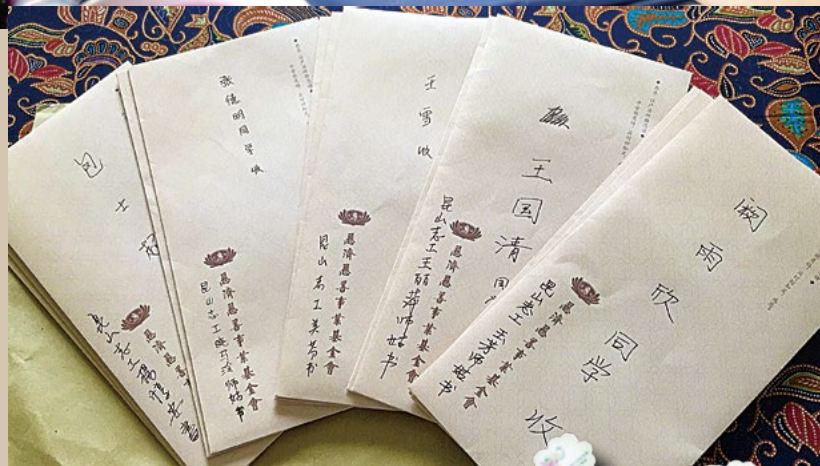 包士
慈濟慈善事業
昆山志工楊
張德明同学收
慈濟慈善事業基金會
昆山志工晓
师姑书
王雪收
慈濟慈善事業基金會
昆山志工美芳书
王国清同
慈濟慈善事業基金會
昆山志工王丽萍师姑书
雨欣同学 收
慈濟慈善事業基金會
昆山志工玉芳师姑书